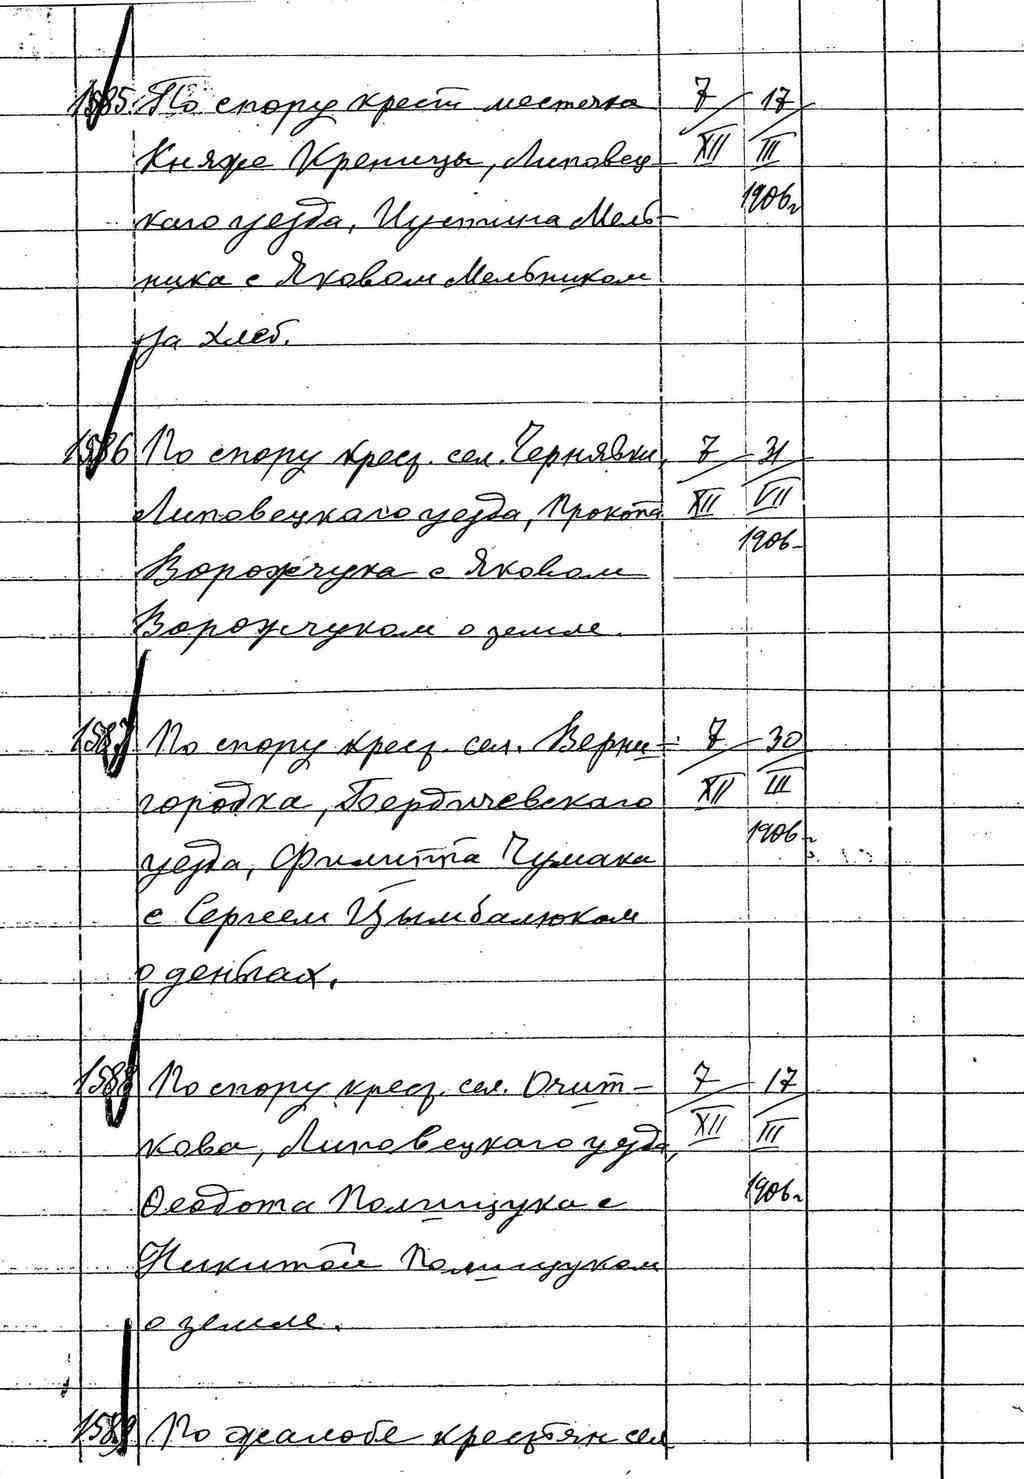 1585. По спору крест местечка 7 17
Княже Креницы, Липовец- XII III
каго уезда, Иустина Мель- 1906г
ника с Яковом Мельником
за хлеб.
1586 По спору крест. сел. Чернявки, 7 31
Липовецкаго уезда, Прокопа XII VII
Ворожчука с Яковом 1906-
Ворожчуком о земле.
1587 По спору крест. сел. Верни- 7 30
городка, Бердичевскаго XII III
уезда, Филиппа Чумака 1906г
с Сергеем Цымбалюком
о деньгах.
1588 По спору крест. сел. Очит- 7 17
кова, Липовецкаго уезда, XII III
Феодота Полищука с 1906г
Никитой Полищуком
о земле.
1589 По жалобе крестьян сел